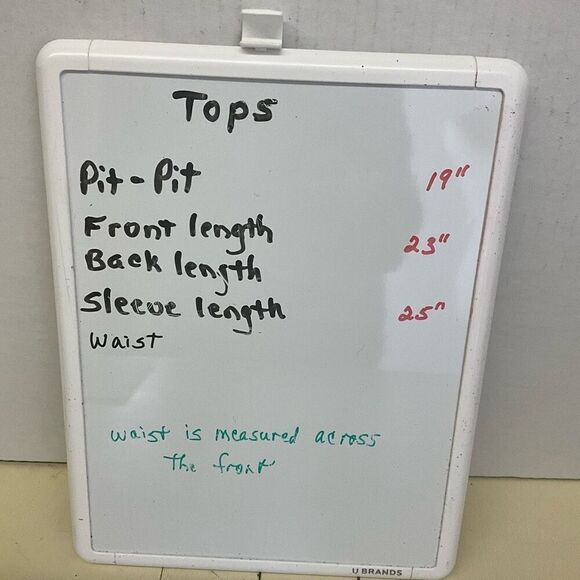 Tops
Pit-Pit 19"
Front length 23"
Back length
Sleeve length 25"
Waist
waist is measured across
The front
U BRANDS